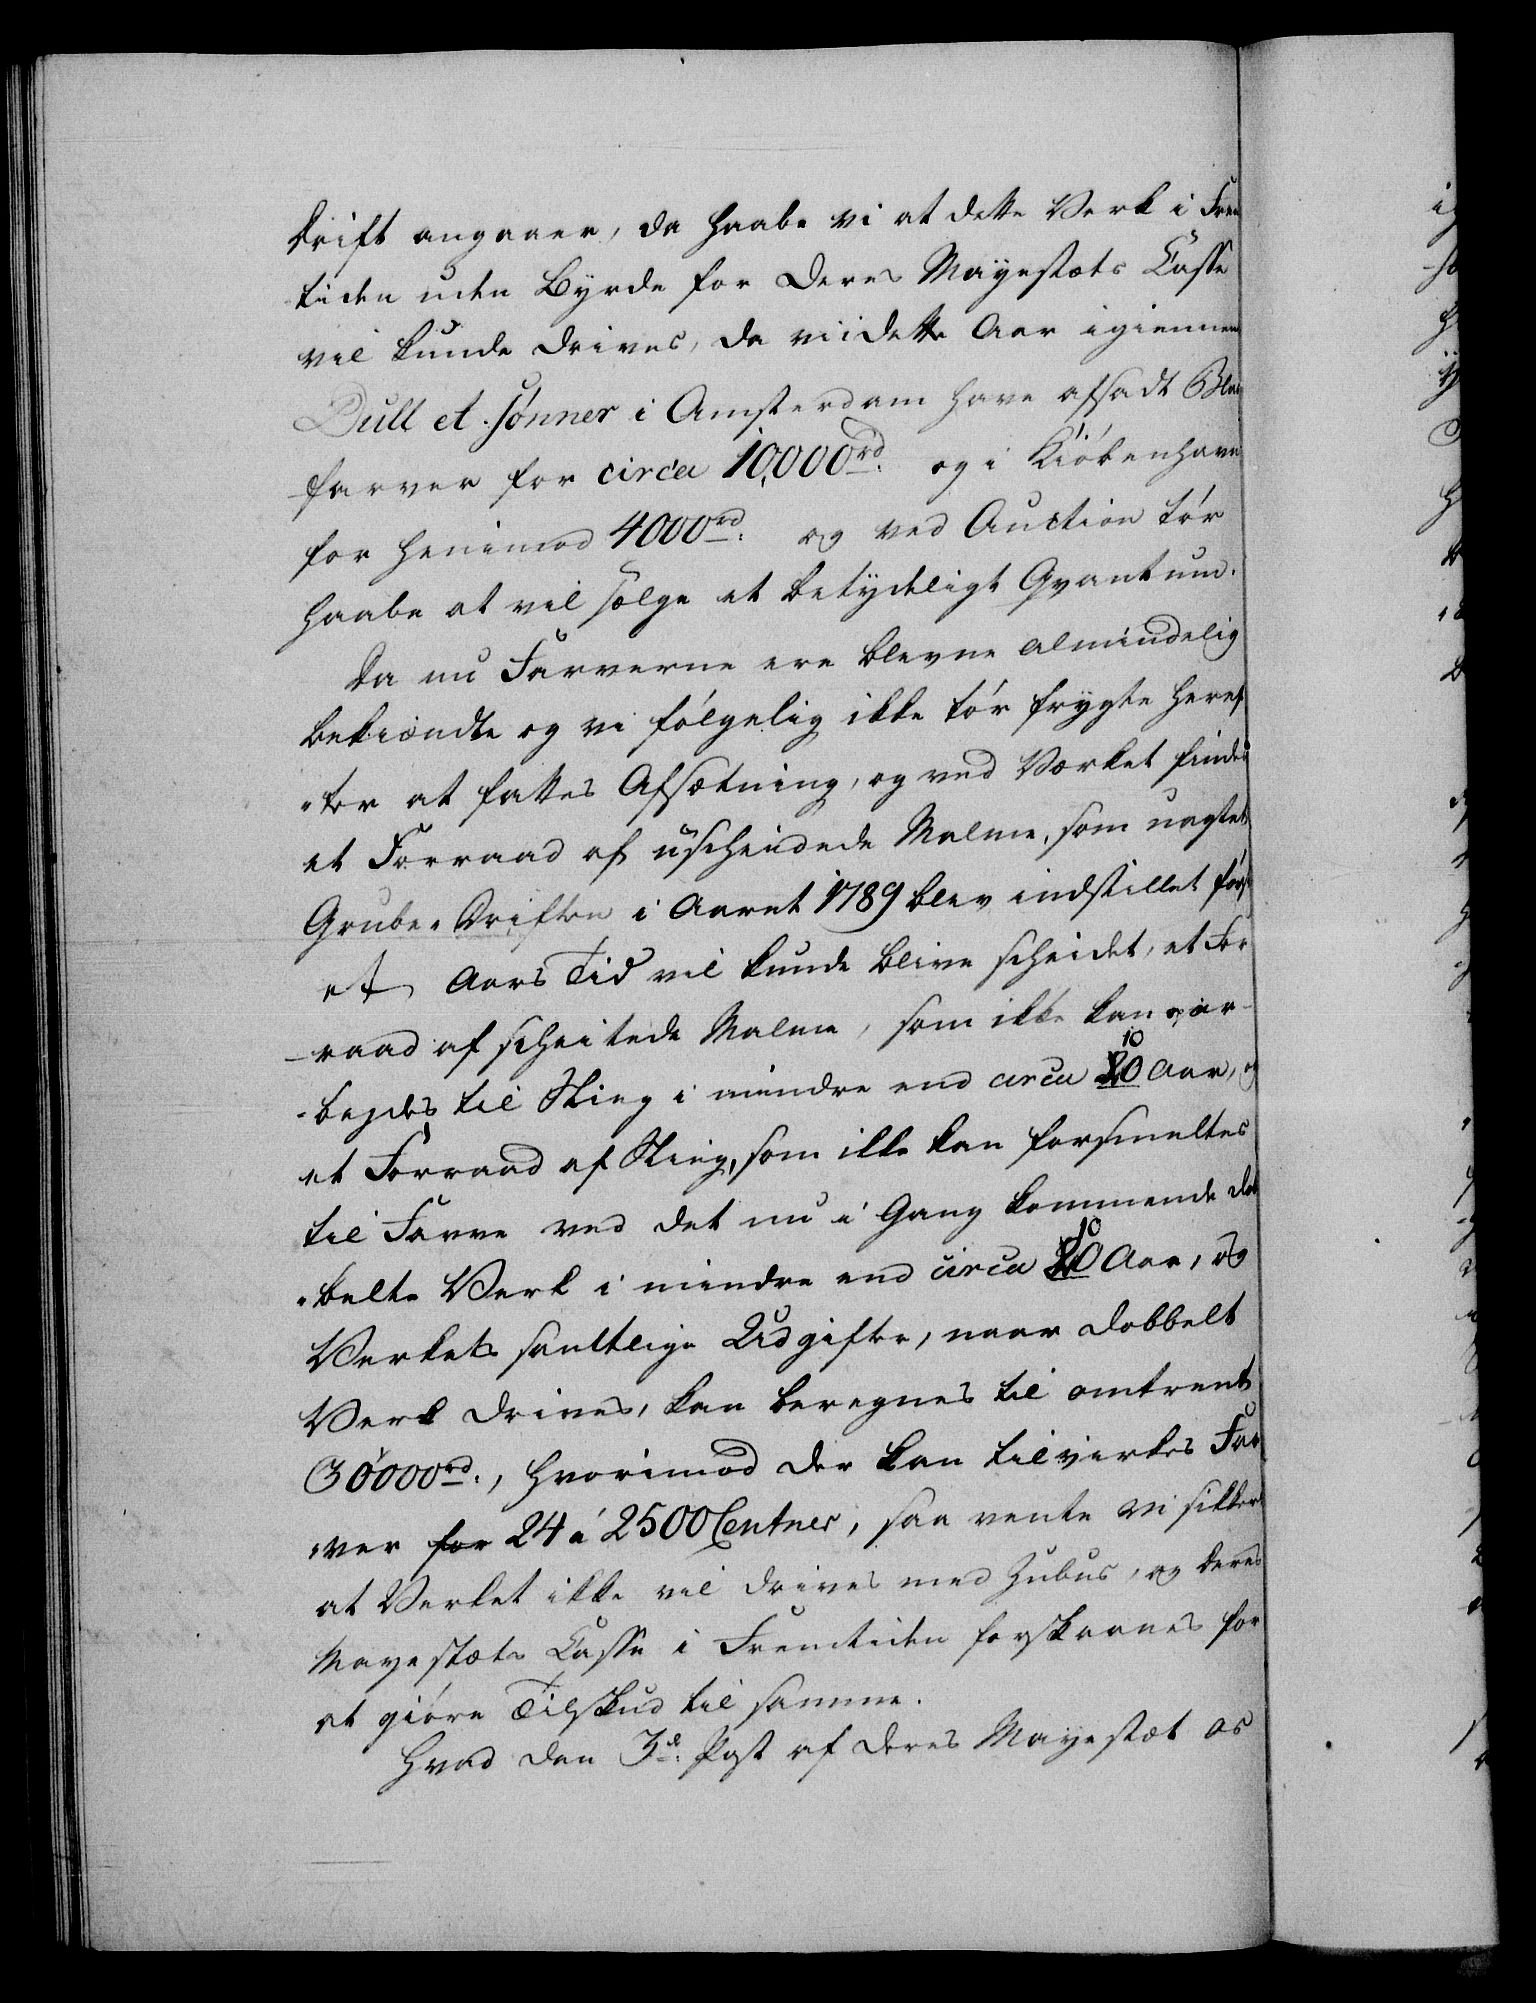 Drift angaaer, da haabe vi at dette Verk i Frem
tiden uden Byrde for Deres Mayestæts Casse
vil kunde drives, da vi i dette Aar igiennem
Dull et Sönner i Amsterdam have afsadt Blaa
farver for circa 10,000rd. og i Kiöbenhavn
for henimod 4000rd. og ved Auction tör
haabe at vil sælge et betydeligt Qvantum.
Da nu Farverne ere blevne almindelig
bekiændte og vi fölgelig ikke tör frygte heref
"ter at fattes Afsætning, og ved Værket findes
et Forraad af uscheidede Malme, som uagtet
Grube-Driften i Aaret 1789 blev indstillet först
et Aars Tid vil kunde blive scheidet, et For
-raad af scheitede Malme, som ikke kan opar-
-bejdes til Slieg i mindre end circa 10 Aar, og
et Forraad af Slieg, som ikke kan forsmeltes
til Farve ved det nu i Gang kommende dob
"belte Verk i mindre end circa 10 Aar, og
Verkets samtlige Udgifter, naar dobbelt
Verk drives, kan beregnes til omtrent
30000rd., hvorimod der kan tilvirkes Far
"ver for 24 á 2500 Centner, saa vente vi sikkert
at Verket ikke vil drives med Zubus, og Deres
Mayestæts Casse i Fremtiden forskaanes for
at giöre Tilskud til samme.
Hvad den 3de. Post af Deres Mayestæt os